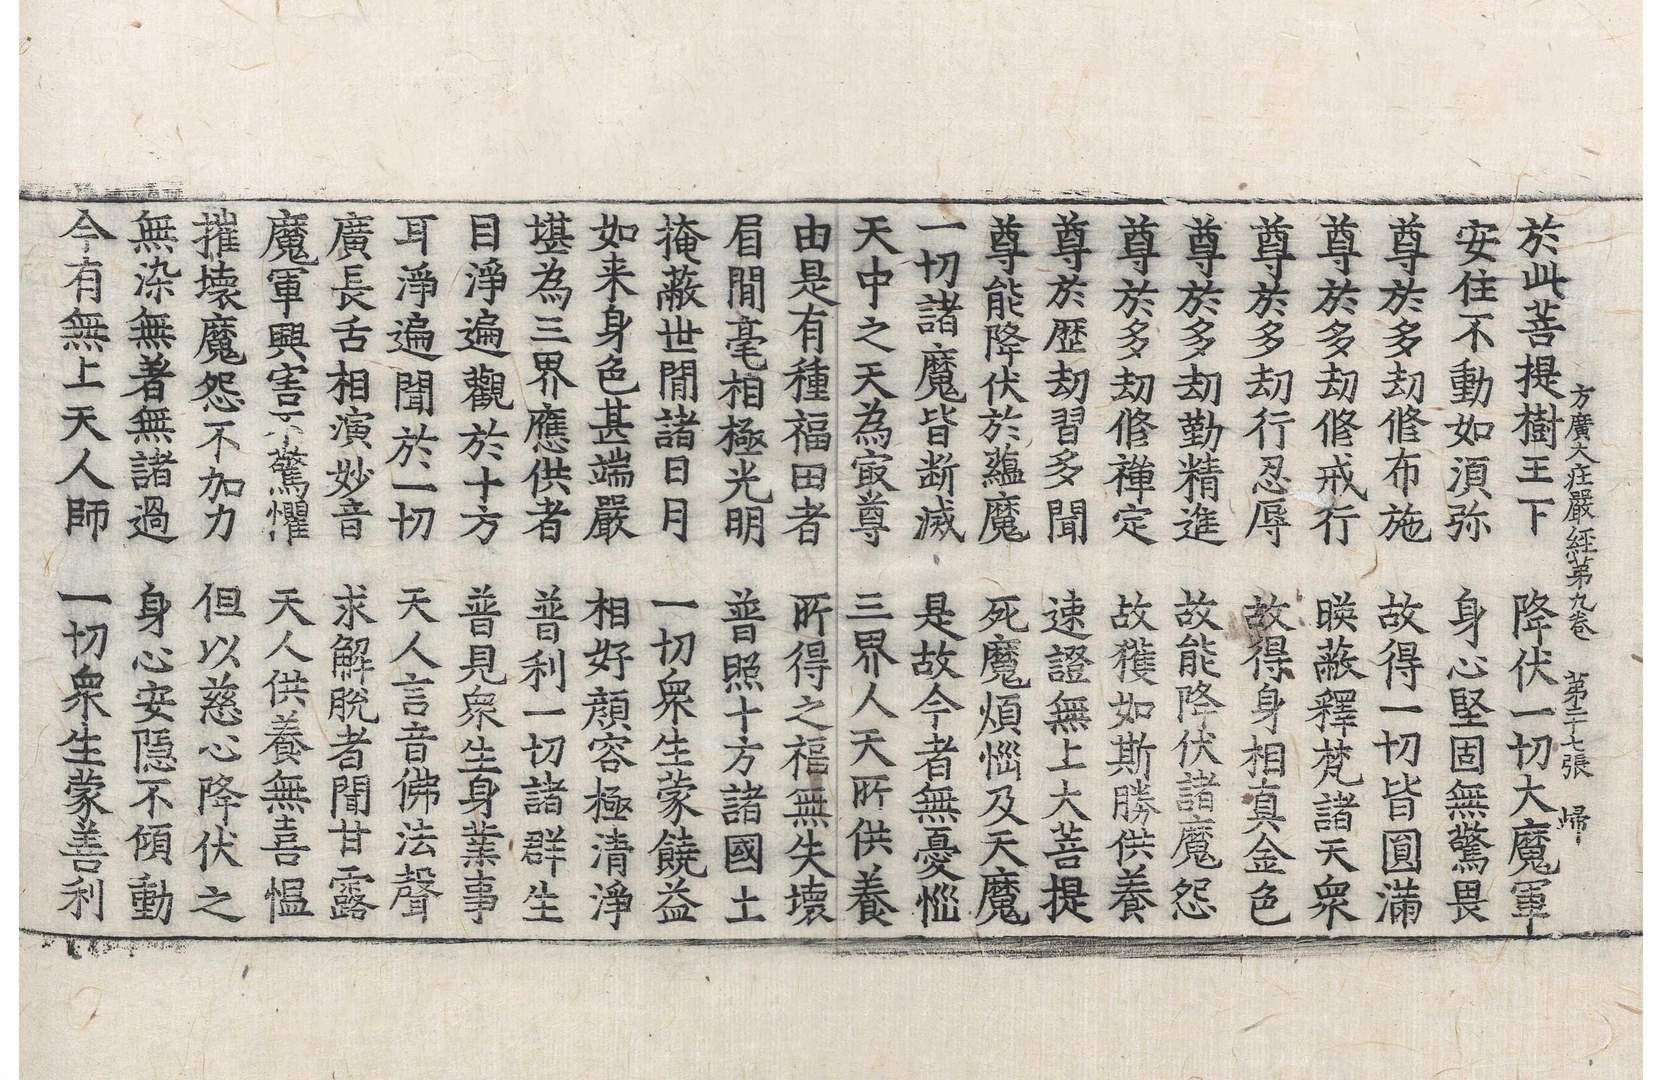 方廣大庄嚴經第九卷　第二十七張　歸
於此菩提樹王下　降伏一切大魔軍
安住不動如須弥　身心堅固無驚畏
尊於多劫修布施　故得一切皆圓滿
尊於多劫修戒行　暎蔽釋梵諸天衆
尊於多劫行忍辱　故得身相真金色
尊於多劫勤精進　故能降伏諸魔怨
尊於多劫修禅定　故獲如斯勝供養
尊於歷劫習多聞　速證無上大菩提
尊能降伏於蘊魔　死魔煩惱及天魔
一切諸魔皆断滅　是故今者無憂惱
天中之天天為㝡尊　三界人天所供養
由是有種福田者　所得之福無失壞
眉間毫相極光明　普照十方諸國土
掩蔽世間諸日月　一切衆生蒙饒益
如来身色甚端嚴　相好顔容極清淨
堪為三界應供者　普利一切諸群生
目淨遍觀於十方　普見衆生身業事
耳淨遍聞於一切　天人言音佛法聲
廣長舌相演妙音　求解脫者聞甘露
魔軍興害不驚懼　天人供養無喜愠
摧壞魔怨不加力　但以慈心降伏之
無染無著無諸過　身心安隱不傾動
今有無上天人師　一切衆生蒙善利